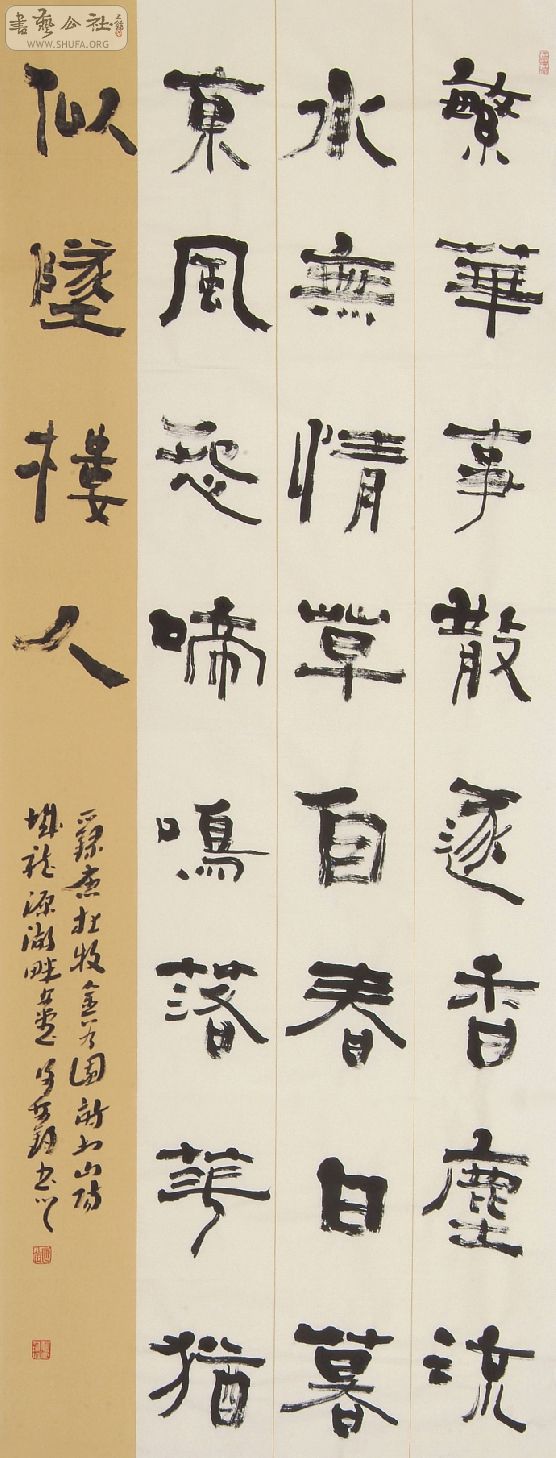 繁華事散逐香塵流
水無情草自春日暮
東風怨啼鳴落華猶
似墜樓人
錄唐杜牧金谷園詩於山陽
書藝公社
WWW.SHUFA.ORG